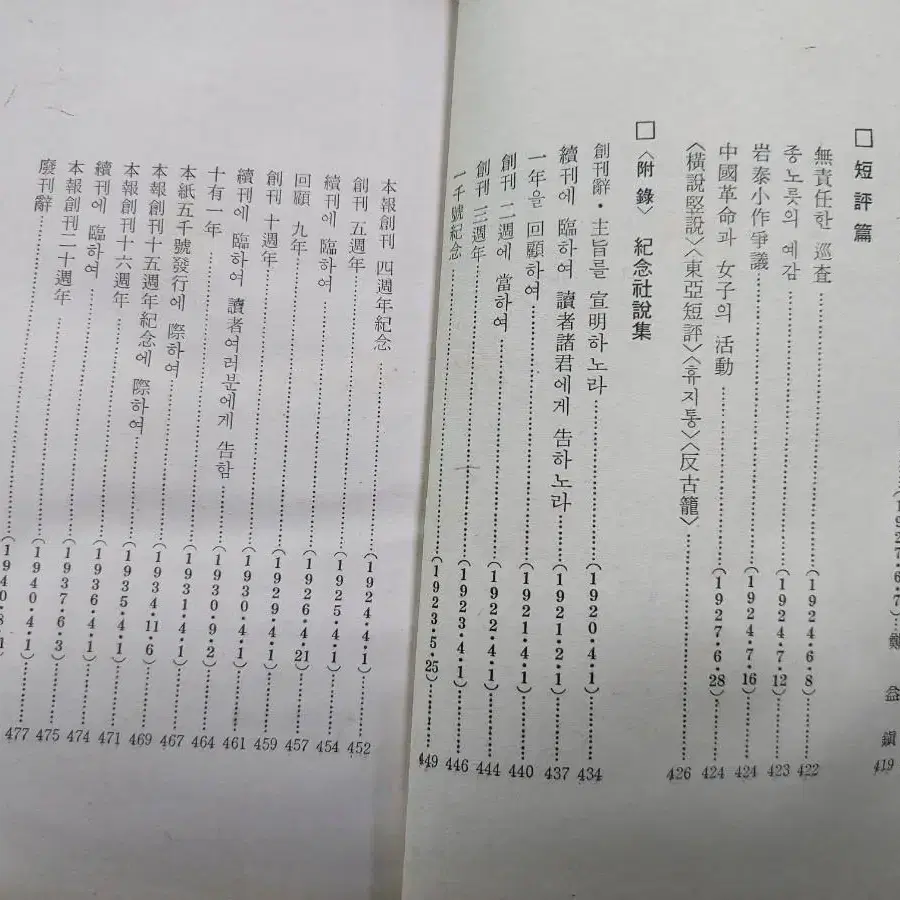 (1927·6·7)……鄭 益 鎭 419
□ 短評篇
無責任한 巡査……(1924·6·8)……422
종노릇의 예감……(1924·7·12)……423
岩泰小作爭議……(1924·7·16)……424
中國革命과 女子의 活動……(1927·6·28)……424
〈橫說竪說〉〈東亞短評〉〈휴지통〉〈反古籠〉……426
□ 〈附錄〉 紀念社說集
創刊辭·主旨를 宣明하노라……(1920·4·1)……434
續刊에 臨하여 讀者諸君에게 告하노라……(1921·2·1)……437
一年을 回顧하여……(1921·4·1)……440
創刊 二週에 當하여……(1922·4·1)……444
創刊 三週年……(1923·4·1)……446
一千號紀念……(1923·5·25)……449
本報創刊 四週年紀念……(1924·4·1)……452
創刊 五週年……(1925·4·1)……454
續刊에 臨하여……(1926·4·21)……457
回顧 九年……(1929·4·1)……459
創刊 十週年……(1930·4·1)……461
續刊에 臨하여 讀者여러분에게 告함……(1930·9·2)……464
十有一年……(1931·4·1)……467
本紙五千號發行에 際하여……(1934·11·6)……469
本報創刊十五週年紀念에 際하여……(1935·4·1)……471
本報創刊十六週年……(1936·4·1)……474
續刊에 臨하여……(1937·6·3)……475
本報創刊二十週年……(1940·4·1)……477
廢刊辭……(1940·8·1